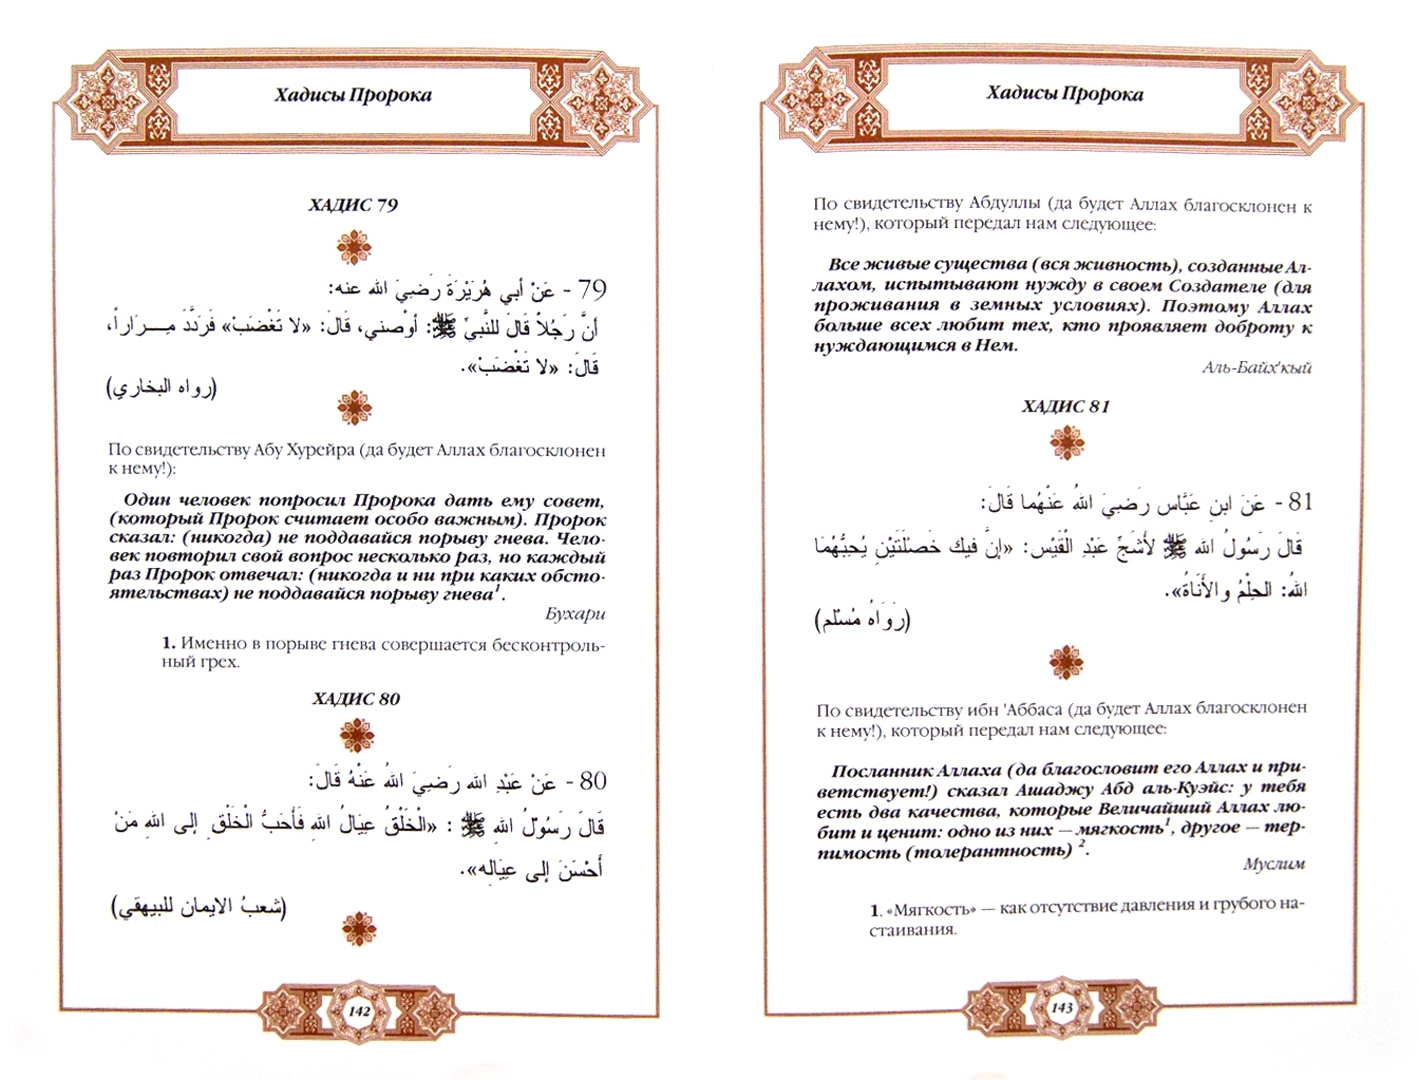 Хадисы Пророка
ХАДИС 79
79 - عَنْ أبي هُرَيْرَةَ رَضيَ الله عنه:
أنَّ رَجُلاً قَالَ للنَّبيِّ ﷺ: أوْصني، قَالَ: «لا تَغْضَبْ» فَرَدَّدَ مِـــرَاراً،
قَالَ: «لا تَغْضَبْ».
(رواه البخاري)
По свидетельству Абу Хурейра (да будет Аллах благосклонен
к нему!):
Один человек попросил Пророка дать ему совет,
(который Пророк считает особо важным). Пророк
сказал: (никогда) не поддавайся порыву гнева. Чело-
век повторил свой вопрос несколько раз, но каждый
раз Пророк отвечал: (никогда и ни при каких обсто-
ятельствах) не поддавайся порыву гнева¹.
Бухари
1. Именно в порыве гнева совершается бесконтроль-
ный грех.
ХАДИС 80
80 - عَنْ عَبْدِ الله رَضيَ اللهُ عَنْهُ قَالَ:
قَالَ رَسُولُ الله ﷺ : «الْخَلْقُ عِيَالُ اللهِ فَأَحَبُّ الْخَلْقِ إلى اللهِ مَنْ
أَحْسَنَ إلى عِيَالِه».
(شعبُ الايمان للبيهقي)
142
Хадисы Пророка
По свидетельству Абдуллы (да будет Аллах благосклонен к
нему!), который передал нам следующее:
Все живые существа (вся живность), созданные Ал-
лахом, испытывают нужду в своем Создателе (для
проживания в земных условиях). Поэтому Аллах
больше всех любит тех, кто проявляет доброту к
нуждающимся в Нем.
Аль-Байх'кый
ХАДИС 81
81 - عَنَ ابنِ عَبَّاس رَضيَ اللهُ عَنْهُما قَالَ:
قَالَ رَسُولُ الله ﷺ لأَشَجِّ عَبْدِ الْقَيْس: «إنَّ فيك خَصْلَتَيْنِ يُحبُّهُمَا
اللهُ: الحِلْمُ والأَنَاةُ».
(رَوَاهُ مُسْلم)
По свидетельству ибн 'Аббаса (да будет Аллах благосклонен
к нему!), который передал нам следующее:
Посланник Аллаха (да благословит его Аллах и при-
ветствует!) сказал Ашаджу Абд аль-Куэйс: у тебя
есть два качества, которые Величайший Аллах лю-
бит и ценит: одно из них — мягкость¹, другое — тер-
пимость (толерантность) ².
Муслим
1. «Мягкость» — как отсутствие давления и грубого на-
стаивания.
143